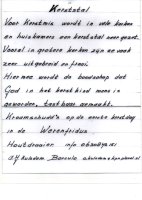 Kerststal
Voor Kerstmis wordt in vele kerken
en huiskamers een kerststal neer gezet.
Vooral in grotere kerken zijn ze vaak
zeer uitgebreid en fraai.
Hiermee wordt de boodschap dat
God in het kerstkind mens is
geworden, tastbaar gemaakt.
Kraamschudd'n op de eerste kerstdag
in de Werenfridus
Houtdraaien
Ruladam Borculo